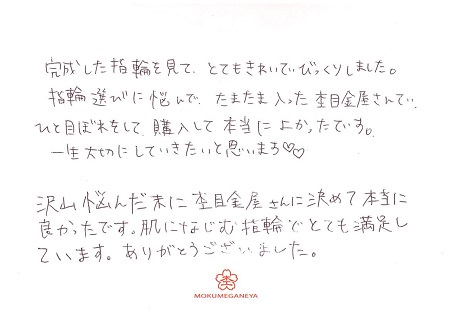 完成した指輪を見て、とてもきれいでびっくりしました。
指輪選びに悩んで、たまたま入った杢目金屋さんで、
ひと目ぼれをして、購入して本当によかったです。
一生大切にしていきたいと思います♡♡
沢山悩んだ末に杢目金屋さんに決めて本当に
良かったです。肌になじむ指輪でとても満足し
ています。ありがとうございました。
MOKUMEGANEYA